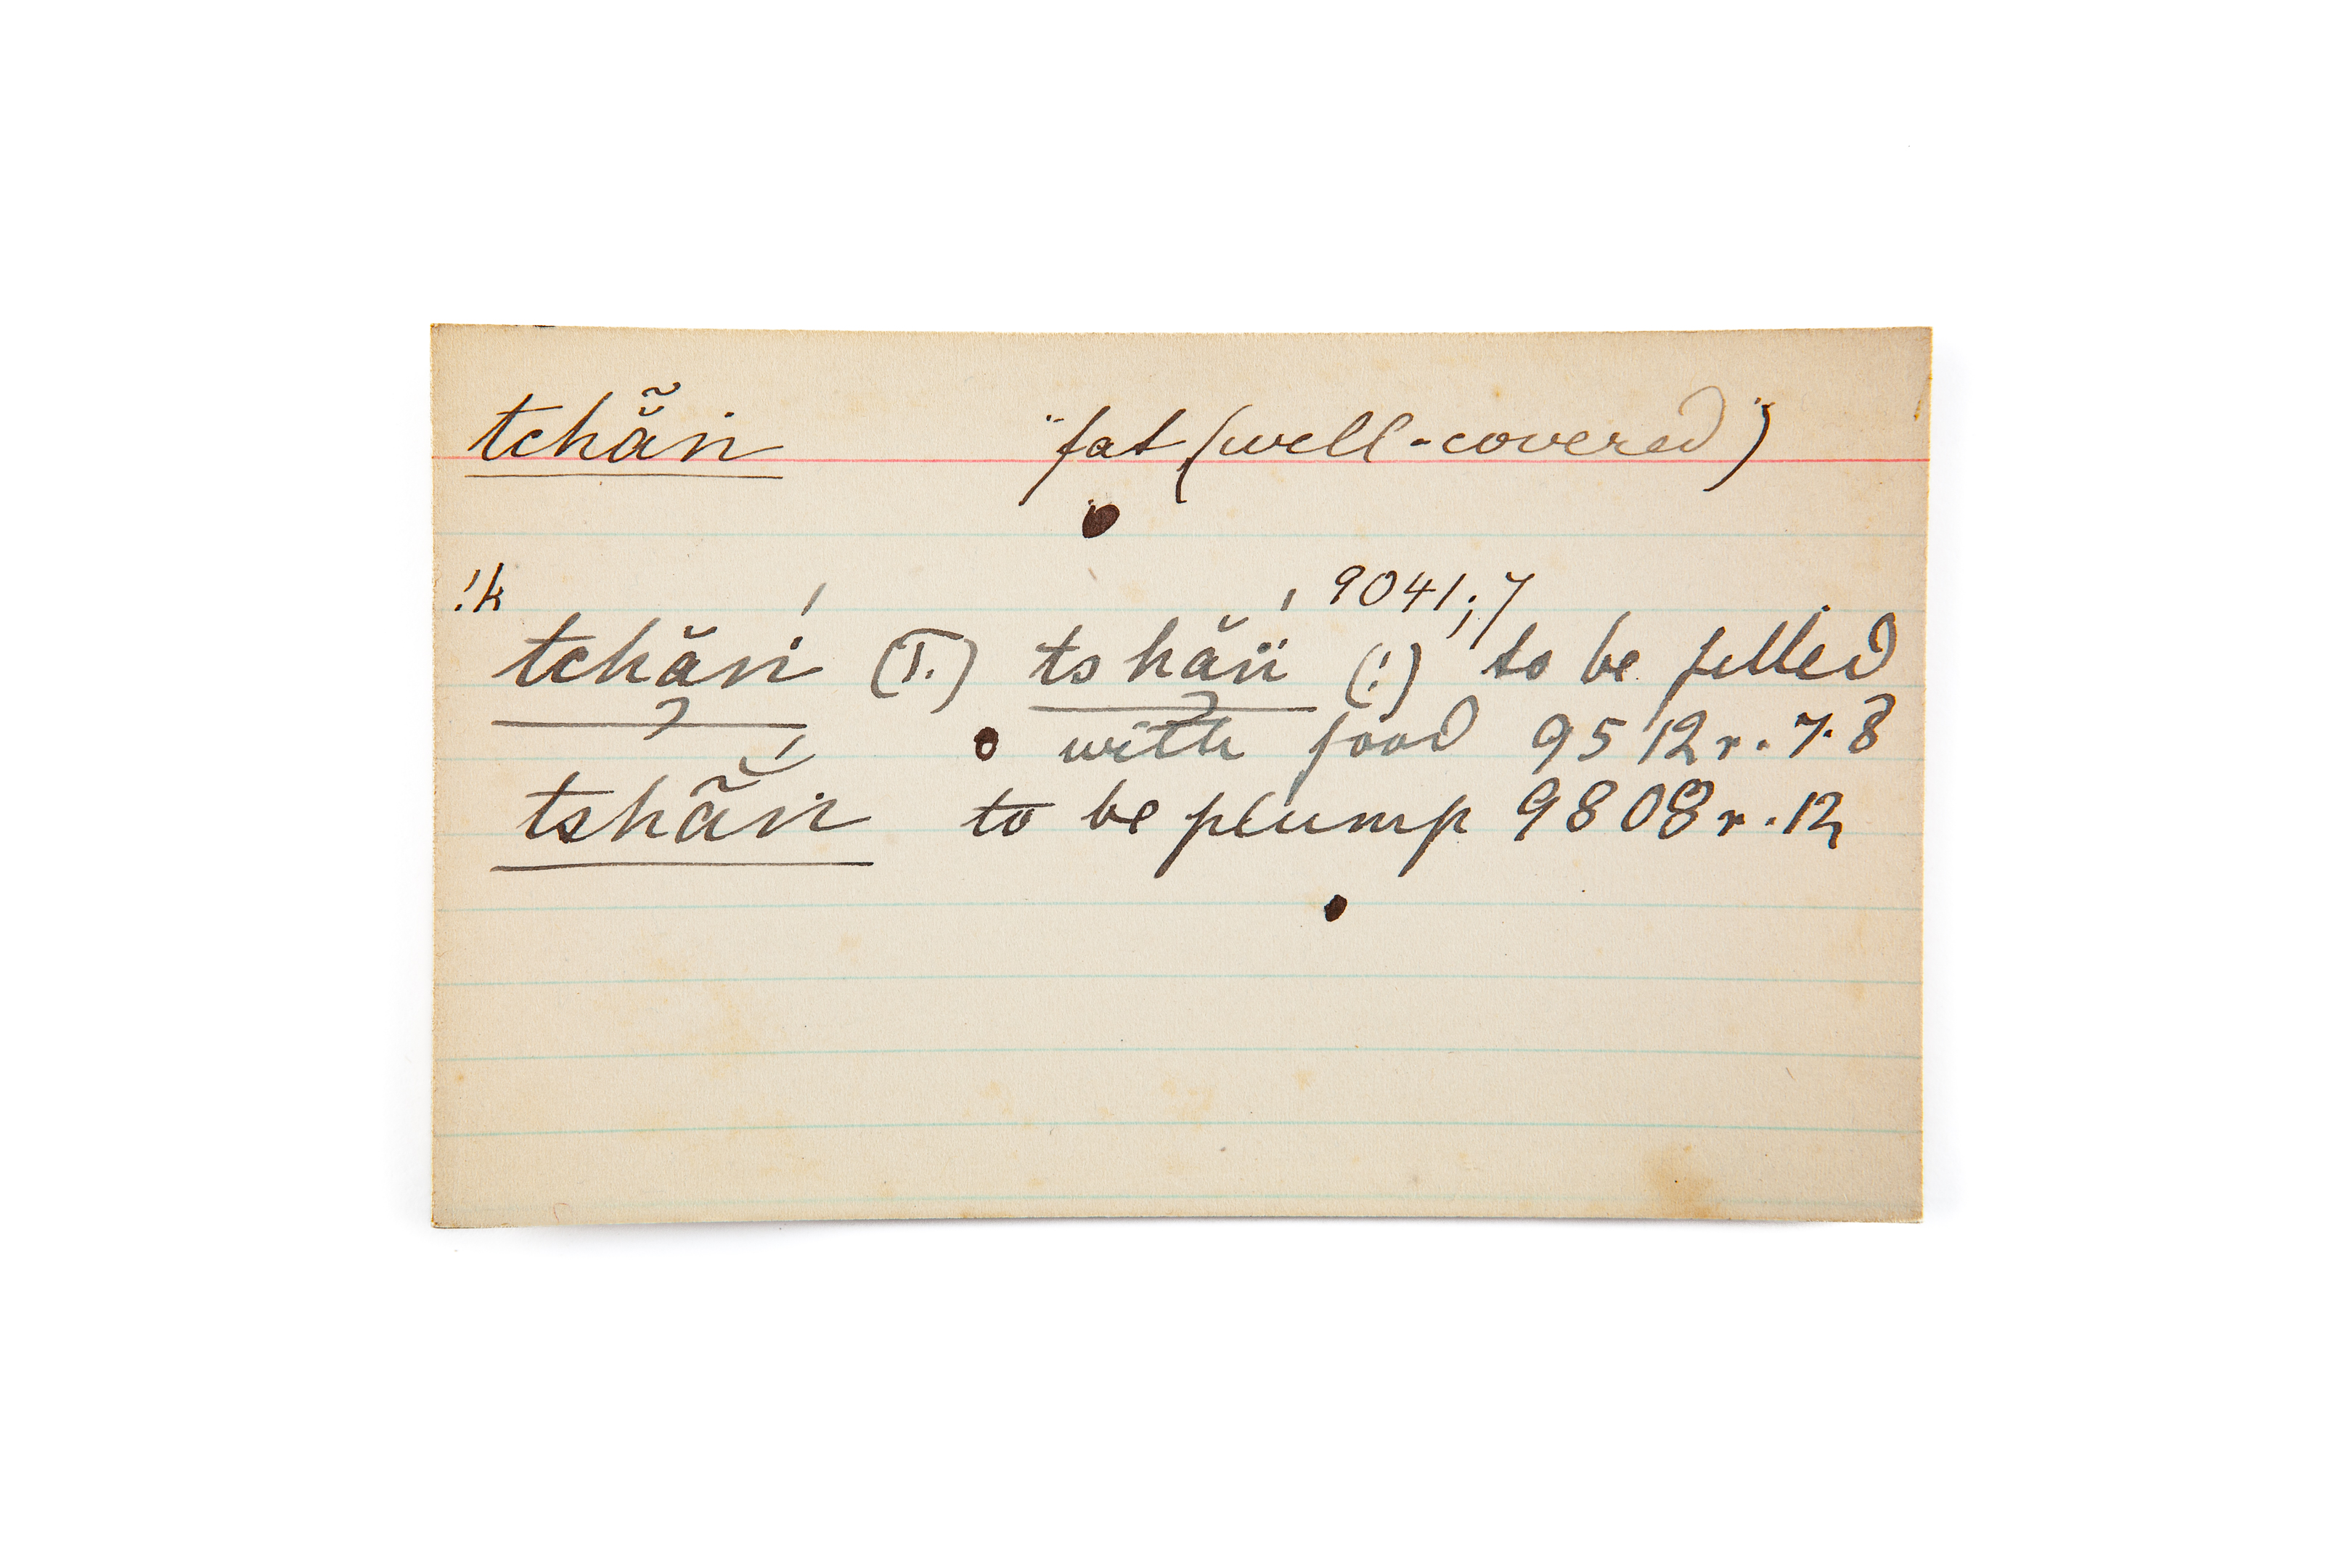 tchẵṅ "fat (well-covered")
!k
9041;7
tchăṅ´ (T.) tshăn̈´ (!) to be filled
with food 9512r.7.8
tshẵṅ´ to be plump 9808r.12